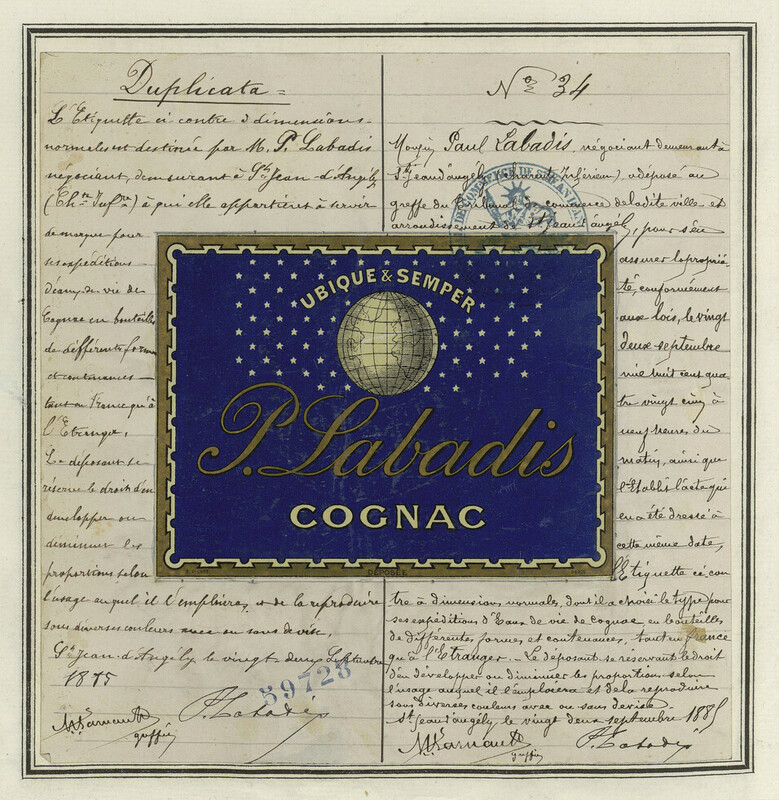 Duplicata =
L'Etiquette ci contre à dimensions
normales est destinée par M. P. Labadis
négociant, demeurant à St Jean d'Angély
(Chte Infre) à qui elle appartient à servir
de marque pour
ses expéditions
d'eaux de vie de
Cognac en bouteilles
de différentes formes
et contenances
tant en France qu'à
l'Etranger.
Le déposant se
réserve le droit d'en
développer ou
diminuer les
proportions selon
l'usage auquel il l'emploiera, et de la reproduire
sous diverses couleurs avec ou sans devise.
St Jean d'Angély le vingt deux Septembre
1885
59723
greffier
P. Labadis
No 34
Paul Labadis, négociant demeurant à
St Jean d'angély (Charente Inférieure) a déposé au
greffe du Tribunal de commerce de ladite ville et
arrondissement de St Jean d'angély, pour s'en
assurer la proprié
té, conformément
aux lois, le vingt
deux septembre
mil huit cent qua
tre vingt cinq à
neuf heures du
matin, ainsi que
l'établit l'acte qui
en a été dressé à
cette même date,
l'Etiquette ci con
tre à dimensions normales, dont il a choisi le type pour
ses expéditions d'Eaux de vie de cognac en bouteilles
de différentes formes et contenances, tant en france
qu'à l'Etranger. Le déposant se reservant le droit
d'en développer ou diminuer les proportions selon
l'usage auquel il l'emploiera et de la reproduire
sous diverses couleurs avec ou sans devise.
St Jean d'angély le vingt deux septembre 1885
greffier
P. Labadis
UBIQUE & SEMPER
P. Labadis
COGNAC
DÉPOSÉE